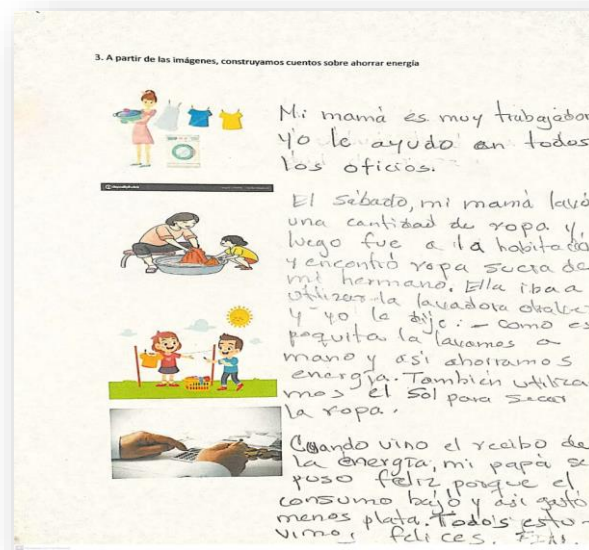 3. A partir de las imágenes, construyamos cuentos sobre ahorrar energía
Mi mamá es muy trabajador
yo le ayudo en todos
los oficios.
El sábado, mi mamá lavó
una cantidad de ropa y,
luego fue a la habitació
y encontró ropa sucia de
mi hermano. Ella iba a
utilizar la lavadora
y yo le dije: - como es
poquita la lavamos a
mano y así ahorramos
energía. También utiliza
mos el sol para secar
la ropa.
Cuando vino el recibo de
la energía, mi papá se
puso feliz porque el
consumo bajó y así gastó
menos plata. Todos estu-
vimos felices. Fin.